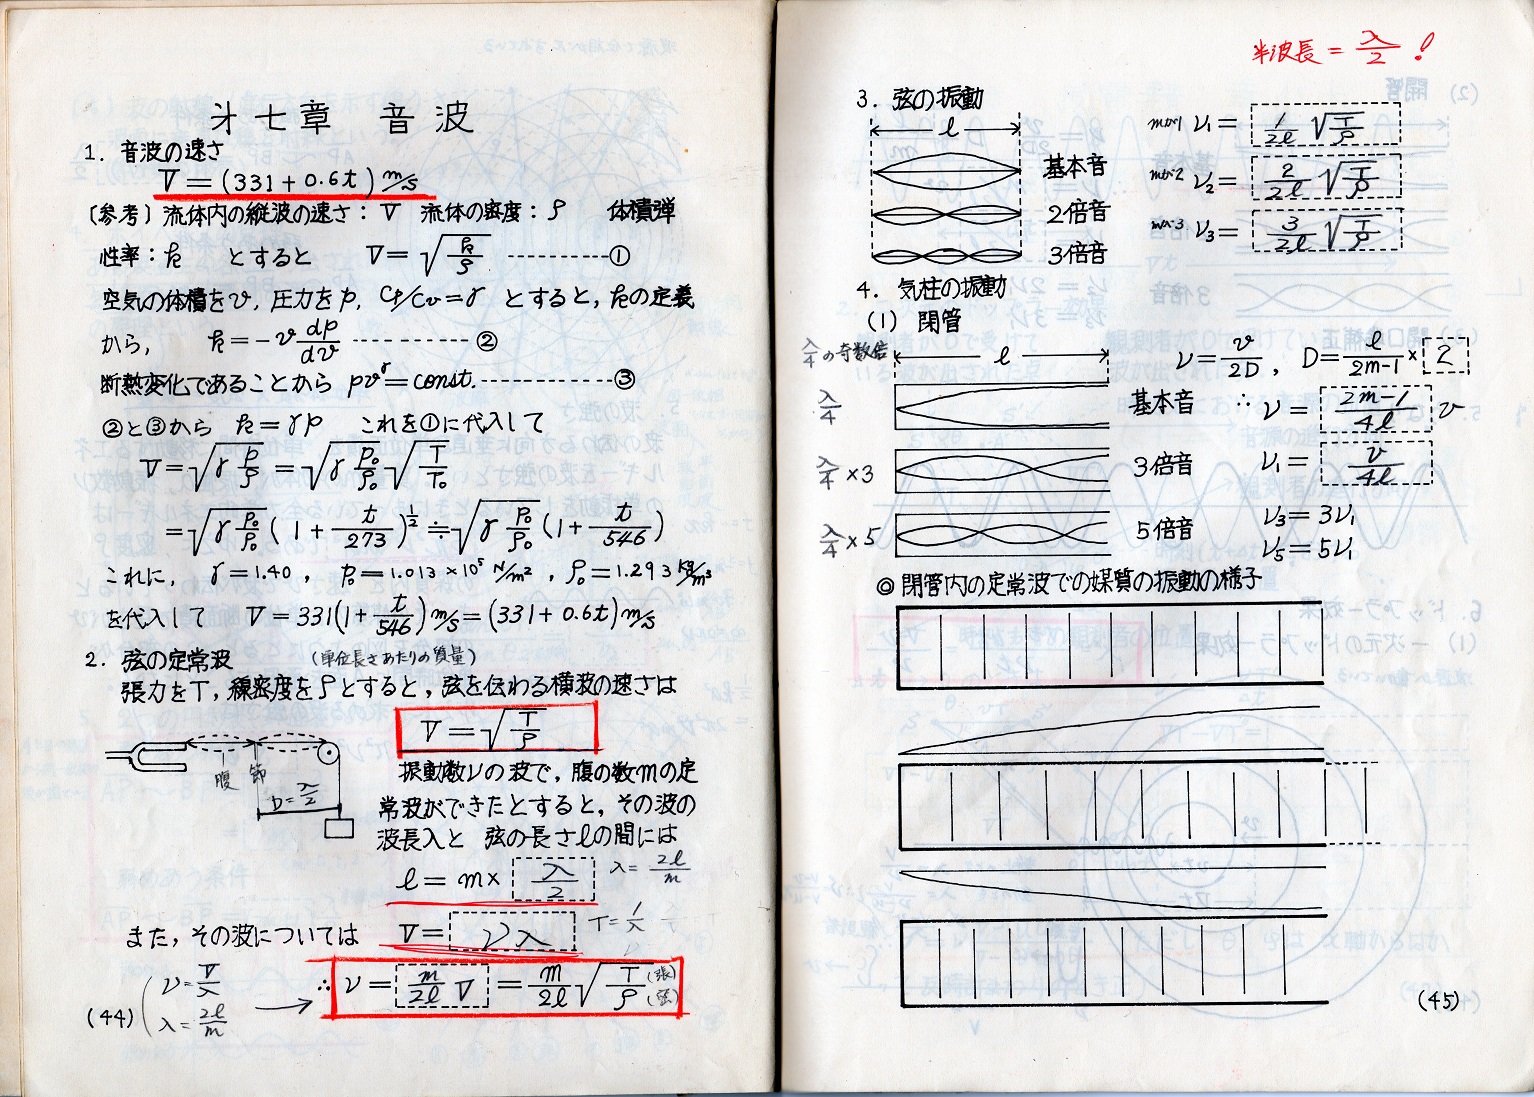 才七章 音波
1. 音波の速さ
V=(331+0.6t) m/s
(参考) 流体内の縦波の速さ: V 流体の密度: ρ 体積弾
性率: k とすると V=√(k/ρ) ----------①
空気の体積をv, 圧力をp, Cp/Cv=γ とすると, kの定義
から, k=-v dp/dv ------------②
断熱変化であることから pv^γ=const.------------③
②と③から k=γp これを①に代入して
V=√(γ p/ρ) = √(γ p₀/ρ₀) √(T/T₀)
=√(γ p₀/ρ₀) (1+ t/273)^½ ≑ √(γ p₀/ρ₀) (1+ t/546)
これに, γ=1.40, p₀=1.013×10⁵ N/m², ρ₀=1.293 kg/m³
を代入して V=331(1+ t/546) m/s=(331+0.6t) m/s
2. 弦の定常波 (単位長さあたりの質量)
張力をT, 線密度をρとすると, 弦を伝わる横波の速さは
V=√(T/ρ)
腹 節
D=λ/2
振動数νの波で, 腹の数mの定
常波ができたとすると, その波の
波長λと 弦の長さlの間には
l=m× λ/2 λ=2l/m
また, その波については V= νλ
ν=V/λ
λ=2l/m
∴ ν= m/2l V = m/2l √(T/ρ) (張) (弦)
(44)
半波長=λ/2 !
3. 弦の振動
l
基本音 mが1 ν₁= 1/2l √(T/ρ)
2倍音 mが2 ν₂= 2/2l √(T/ρ)
3倍音 mが3 ν₃= 3/2l √(T/ρ)
4. 気柱の振動
(1) 閉管
λ/4の奇数倍 l ν=v/2D, D= l/2m-1 × 2
λ/4 基本音 ∴ ν= 2m-1/4l v
λ/4×3 3倍音 ν₁= v/4l
λ/4×5 5倍音 ν₃=3ν₁
ν₅=5ν₁
◎ 閉管内の定常波での媒質の振動の様子
(45)